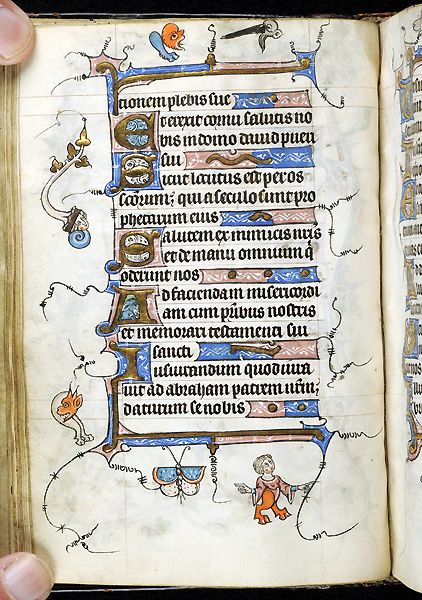 ctionem plebis sue
Et erexit cornu salutis no
bis in domo dauid pueri
sui
Sicut locutus est per os
scorum; qui a seculo sunt pro
phetarum eius
Salutem ex inimicis nris
et de manu omnium q
oderunt nos
Ad faciendam misericordi
am cum pribus nostris
et memorari testamenti sui
sancti
Iusiurandum quod iura
uit ad abraham patrem nrm;
daturum se nobis